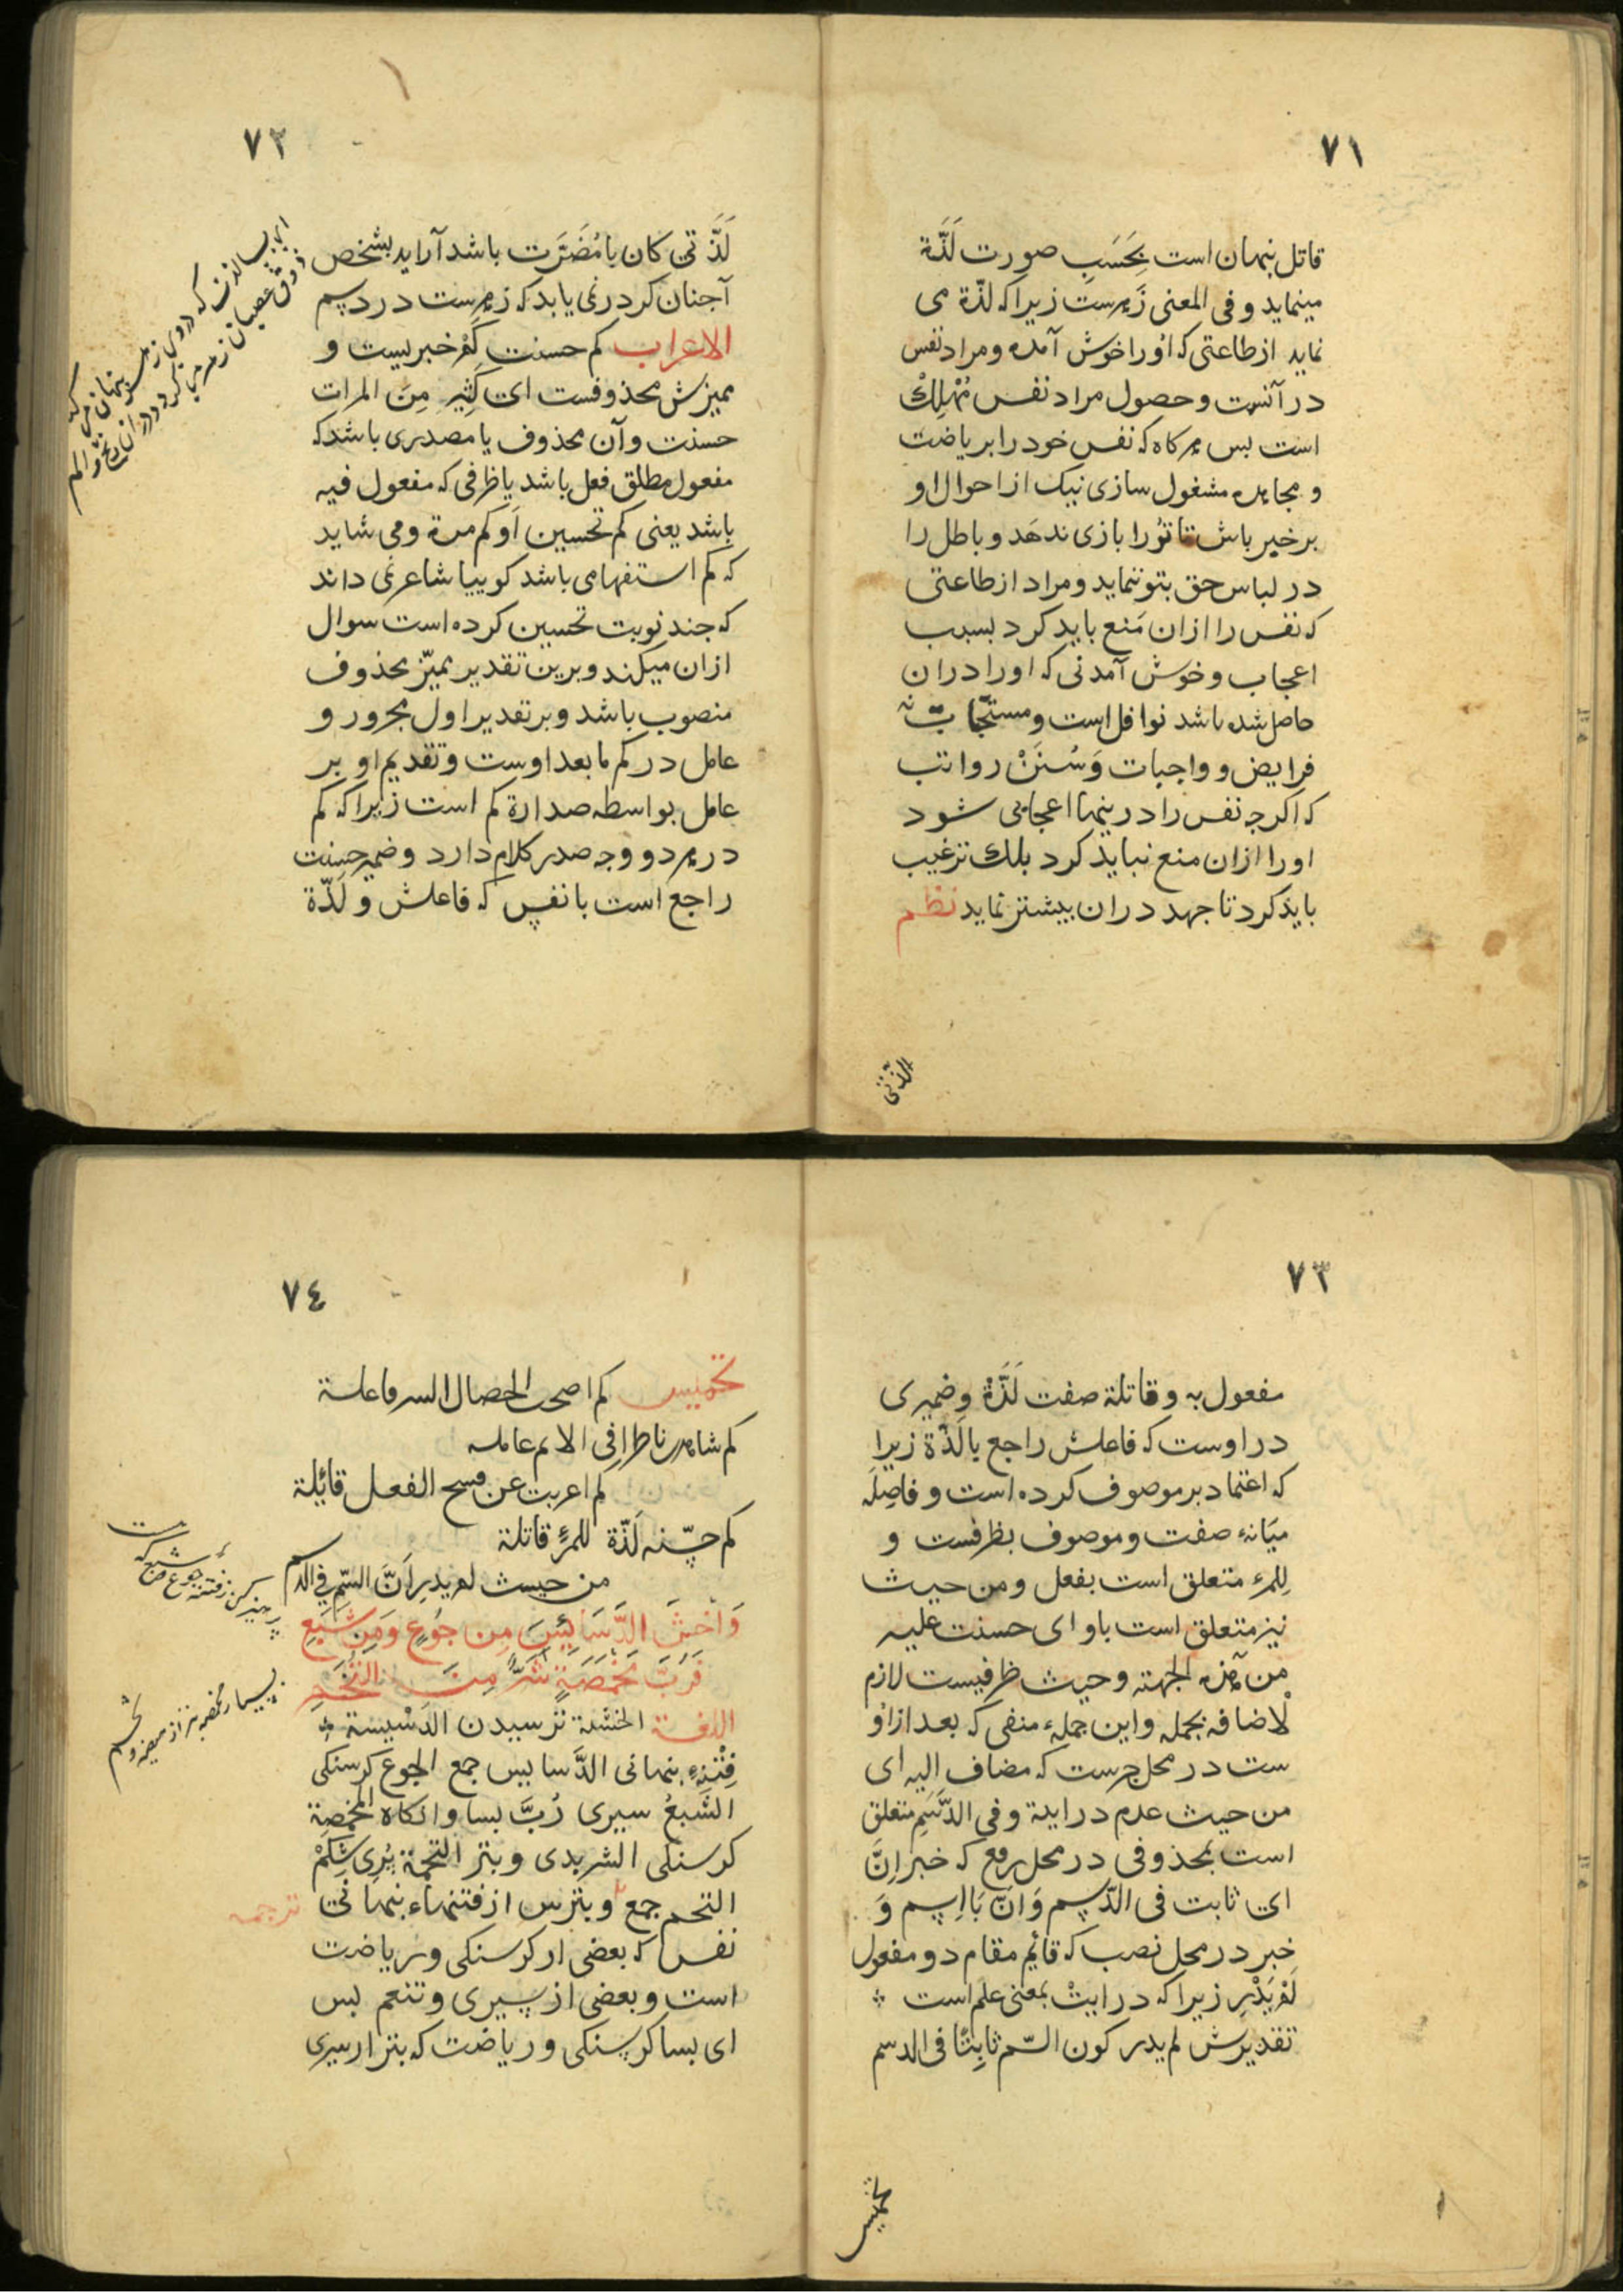 ٧١
قاتل پنهان است بِحَسَبِ صورت لَذَّة
مینماید و فی المعنی زَهرست زیرا که لذّة می
نماید ازطاعتی که اورا خوش آمده و مراد نفس
در آنست و حصول مراد نفس مُهْلِكْ
است بس هرکاه که نفس خود را بریاضت
و مجاهده مشغول سازی نیک از احوال او
برخیر باش تا تُورا بازی ندهَد و باطل را
در لباس حق بتو ننماید و مراد از طاعتی
که نفس را ازان مَنع باید کرد بسبب
اعجاب و خوش آمدنی که اورا دران
حاصل شده باشد نوافل است و مستحبّات نه
فرایض و واجبات وَ سُنَنْ رواتب
که اکرچه نفس را درینها اعجابی شود
اورا ازان منع نباید کرد بلك ترغیب
باید کرد تا جهد دران بیشتر نماید نظم
لذّتی
٧٢
لَذَّتی کان با مُضَرَّت باشد آراید بشخص
آجنان کردر نمی یابد که زهرست در دسم
الاعراب کم حسنت کَمْ خبریست و
ممیزش محذوفست ای کَثِیرٍ مِنَ المرات
حسنت و آن محذوف یا مصدری باشد که
مفعول مطلق فعل باشد یا ظرفی که مفعول فیه
باشد یعنی کم تحسین اَو کم مرة و می شاید
که کم استفهامی باشد کوییا شاعر نمی داند
که جند نوبت تحسین کرده است سوال
ازان میکند و برین تقدیر ممیّز محذوف
منصوب باشد و بر تقدیر اول مجرور و
عامل در کم مابعد اوست و تقدیم او بر
عامل بواسطه صدارة کم است زیرا که کم
در هر دو وجه صدر کلام دارد و ضمیر حسنت
راجع است با نفس که فاعلش و لَذّة
٧٣
مفعول به و قاتلة صفت لَذَّة و ضمیری
در اوست که فاعلش راجع بالَذّة زیرا
که اعتماد بر موصوف کرده است و فاصِله
میَانهٔ صفت و موصوف بظرفست و
لِلمرء متعلق است بفعل و من حیث
نیز متعلق است باو ای حسنت علیه
من هذه الجهته و حیث ظرفیست لازم
لْاضافه بجمله و این جملهٔ منفی که بعد ازاو
ست در محل جرست که مضاف الیه ای
من حیث عدم درایة و فی الدَّسَمِ متعلق
است بمحذوفی در محل رفع که خبر اِنَّ
ای ثابت فی الدّسم وَ اَنّ بَا اِسم وَ
خبر در محل نصب که قایم مقام دو مفعول
لَمْ یَدْرِ زیرا که درایتْ بمعنی علم است
تقدیرش لم یدر کون السّم ثابِتًا فی الدسم
تخمیس
٧٤
تخمیس کم اصحت الخصال السر فاعلة
کم شاهد ناظرا فی الاثم عامله
کم اعربت عن قبیح الفعل قائلة
کم حسّنت لَذّة للمرءِ قاتلة
من حیث لم یدر اَنَّ السّم فی الدسم
وَاخْشَ الدَّسَائِسَ مِن جُوعٍ وَمِن شَبَعِ
فَرُبَّ مَخْمَصَةٍ شَرٌّ مِنَ التُّخَمِ
اللغة الخشیة ترسیدن الدَسْیسة
فِتْنهٔ پنهانی الدَّسا یس جمع الجوع کرسنکی
الشَّبعُ سیری رُبَّ بسا و انکاه المخمصة
کرسنکی الشر بدی و بتر التخمة پُری شکمْ
التخم جمع و بترس از فتنهاء پنهانی ترجمه
نفس که بعضی از کرسنکی و ریاضت
است و بعضی از سیری و تنعم بس
ای بسا کرسنکی و ریاضت که بتر از سیری